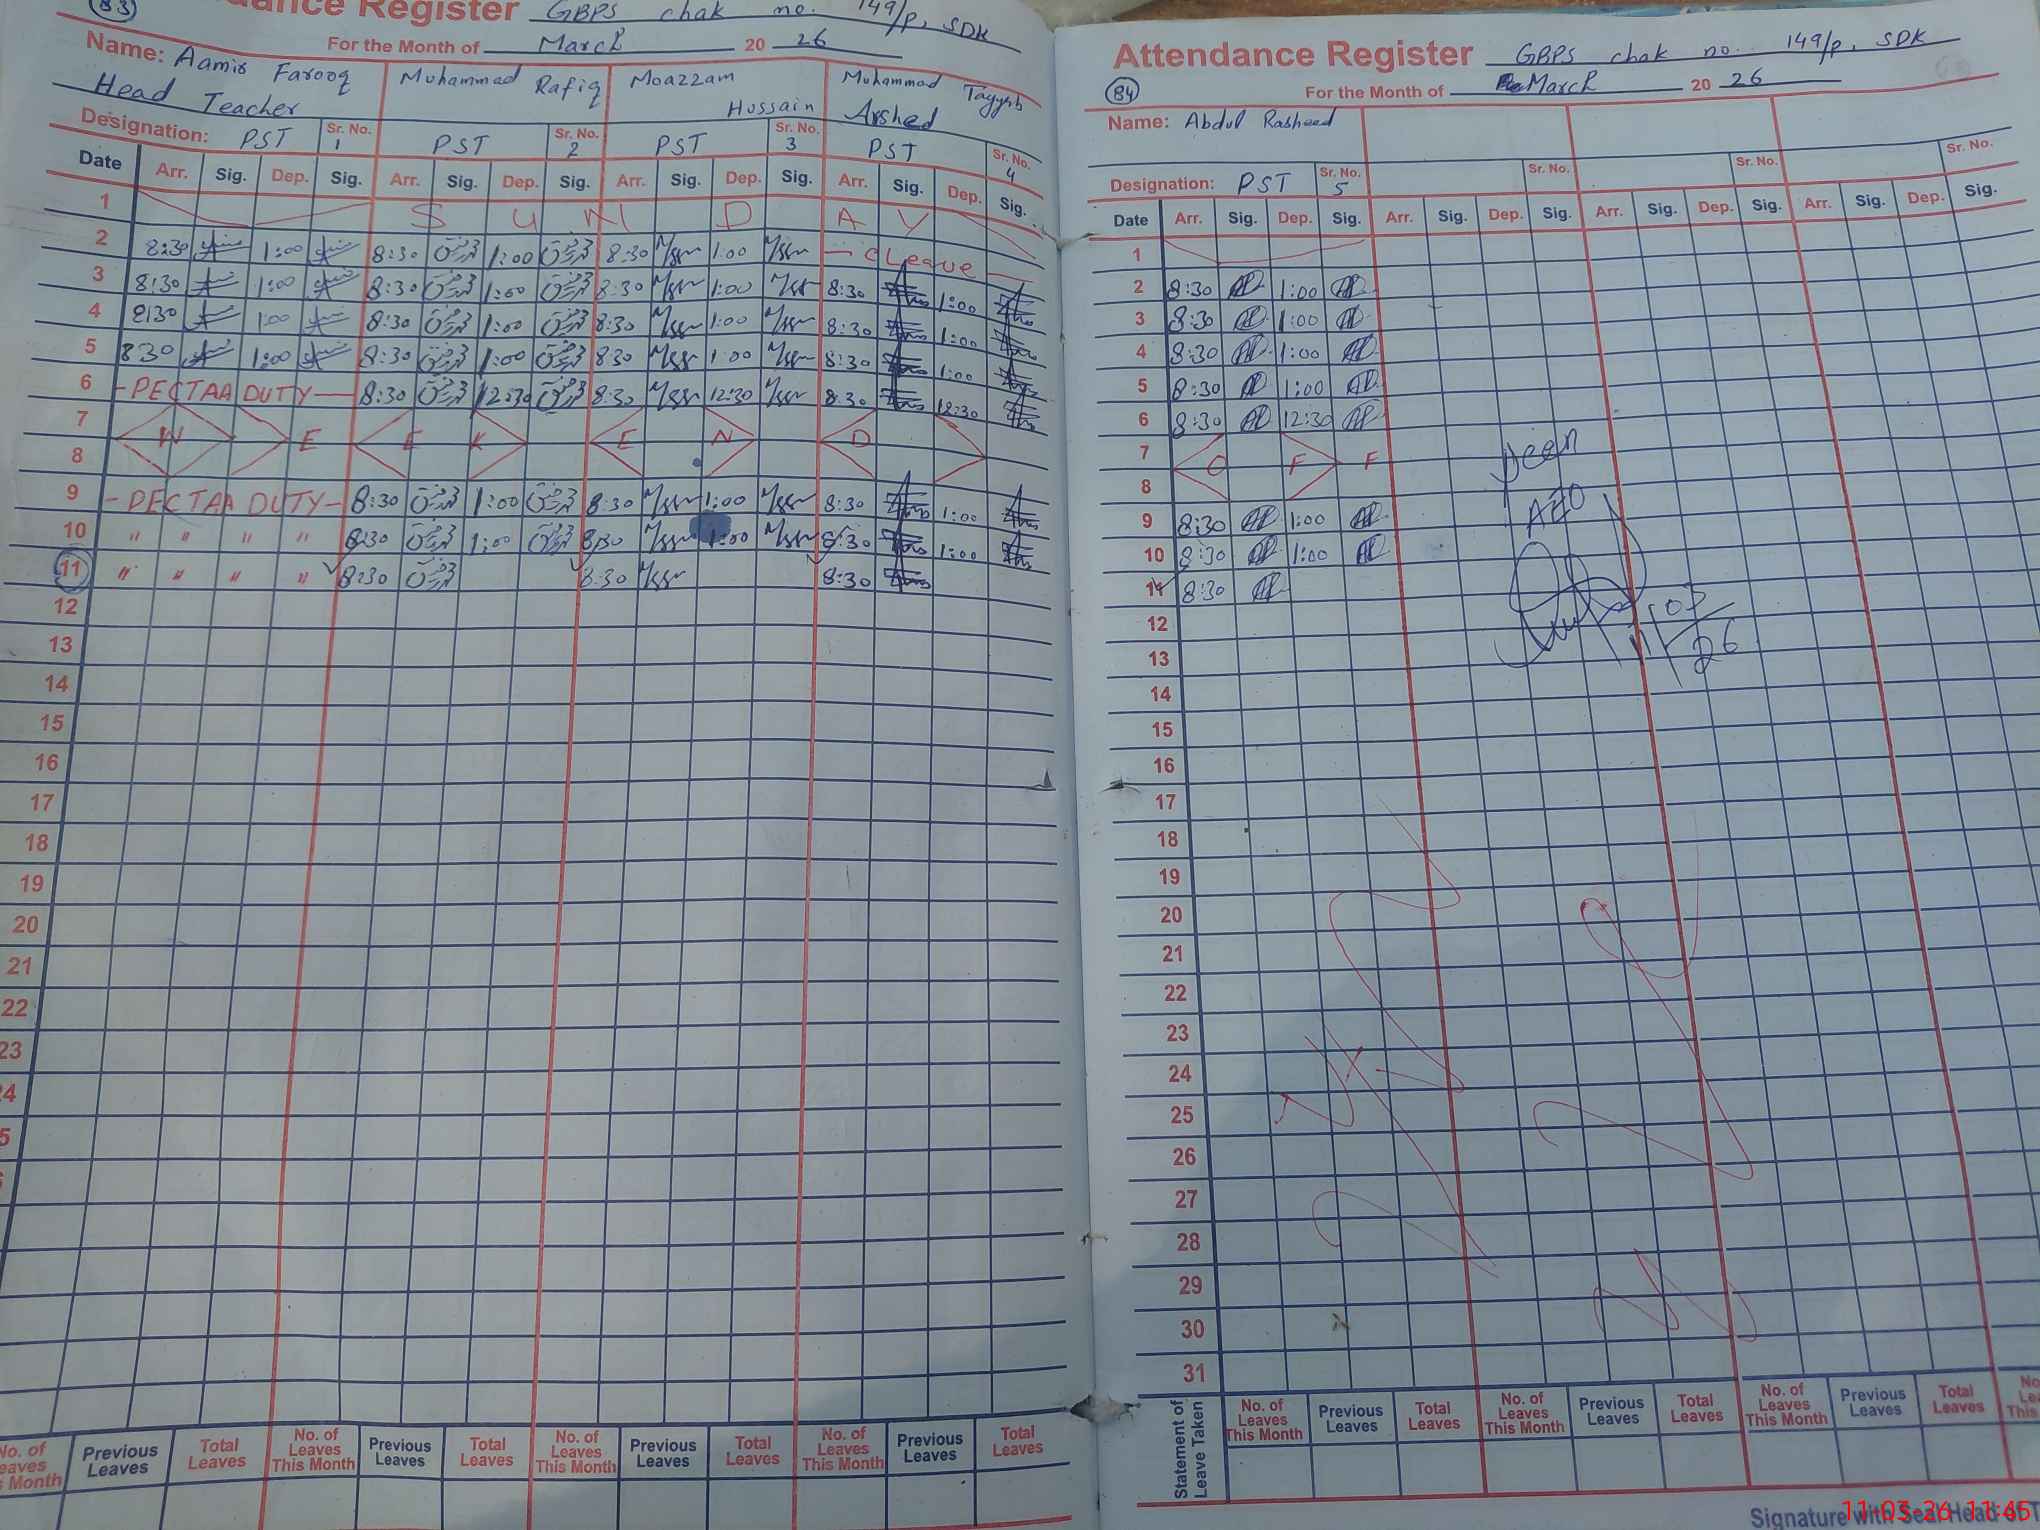 83
Attendance Register GBPS chak no. 149/P, SDK
For the Month of March 20 26
Name: Aamir Farooq Head Teacher
Muhammad Rafiq
Moazzam Hussain
Muhammad Tayyab Arshed
Designation: PST Sr. No. 1 PST Sr. No. 2 PST Sr. No. 3 PST Sr. No. 4
Date Arr. Sig. Dep. Sig. Arr. Sig. Dep. Sig. Arr. Sig. Dep. Sig. Arr. Sig. Dep. Sig.
1 S U N D A Y
2 8:30 1:00 8:30 1:00 8:30 1:00 - c Leave -
3 8:30 1:00 8:30 1:00 8:30 1:00 8:30 1:00
4 8:30 1:00 8:30 1:00 8:30 1:00 8:30 1:00
5 8:30 1:00 8:30 1:00 8:30 1:00 8:30 1:00
6 - PECTAA DUTY - 8:30 12:30 8:30 12:30 8:30 12:30
7 W E E K E N D
8
9 - PECTAA DUTY - 8:30 1:00 8:30 1:00 8:30 1:00
10 " " " " 8:30 1:00 8:30 1:00 8:30 1:00
11 " " " " 8:30 8:30 8:30
12
13
14
15
16
17
18
19
20
21
22
23
24
5
No. of Leaves This Month Previous Leaves Total Leaves No. of Leaves This Month Previous Leaves Total Leaves No. of Leaves This Month Previous Leaves Total Leaves No. of Leaves This Month Previous Leaves Total Leaves
Attendance Register GBPS chak no. 149/P, SDK
84
For the Month of March 20 26
Name: Abdul Rasheed
Designation: PST Sr. No. 5 Sr. No. Sr. No. Sr. No.
Date Arr. Sig. Dep. Sig. Arr. Sig. Dep. Sig. Arr. Sig. Dep. Sig. Arr. Sig. Dep. Sig.
1
2 8:30 1:00
3 8:30 1:00
4 8:30 1:00
5 8:30 1:00
6 8:30 12:30
7 O F F
8
9 8:30 1:00
10 8:30 1:00
11 8:30
Seen
AEO
11/03/26
12
13
14
15
16
17
18
19
20
21
22
23
24
25
26
27
28
29
30
31
Statement of Leave Taken No. of Leaves This Month Previous Leaves Total Leaves No. of Leaves This Month Previous Leaves Total Leaves No. of Leaves This Month Previous Leaves Total Leaves
Signature with Seal Head of
11-03-26 11:45